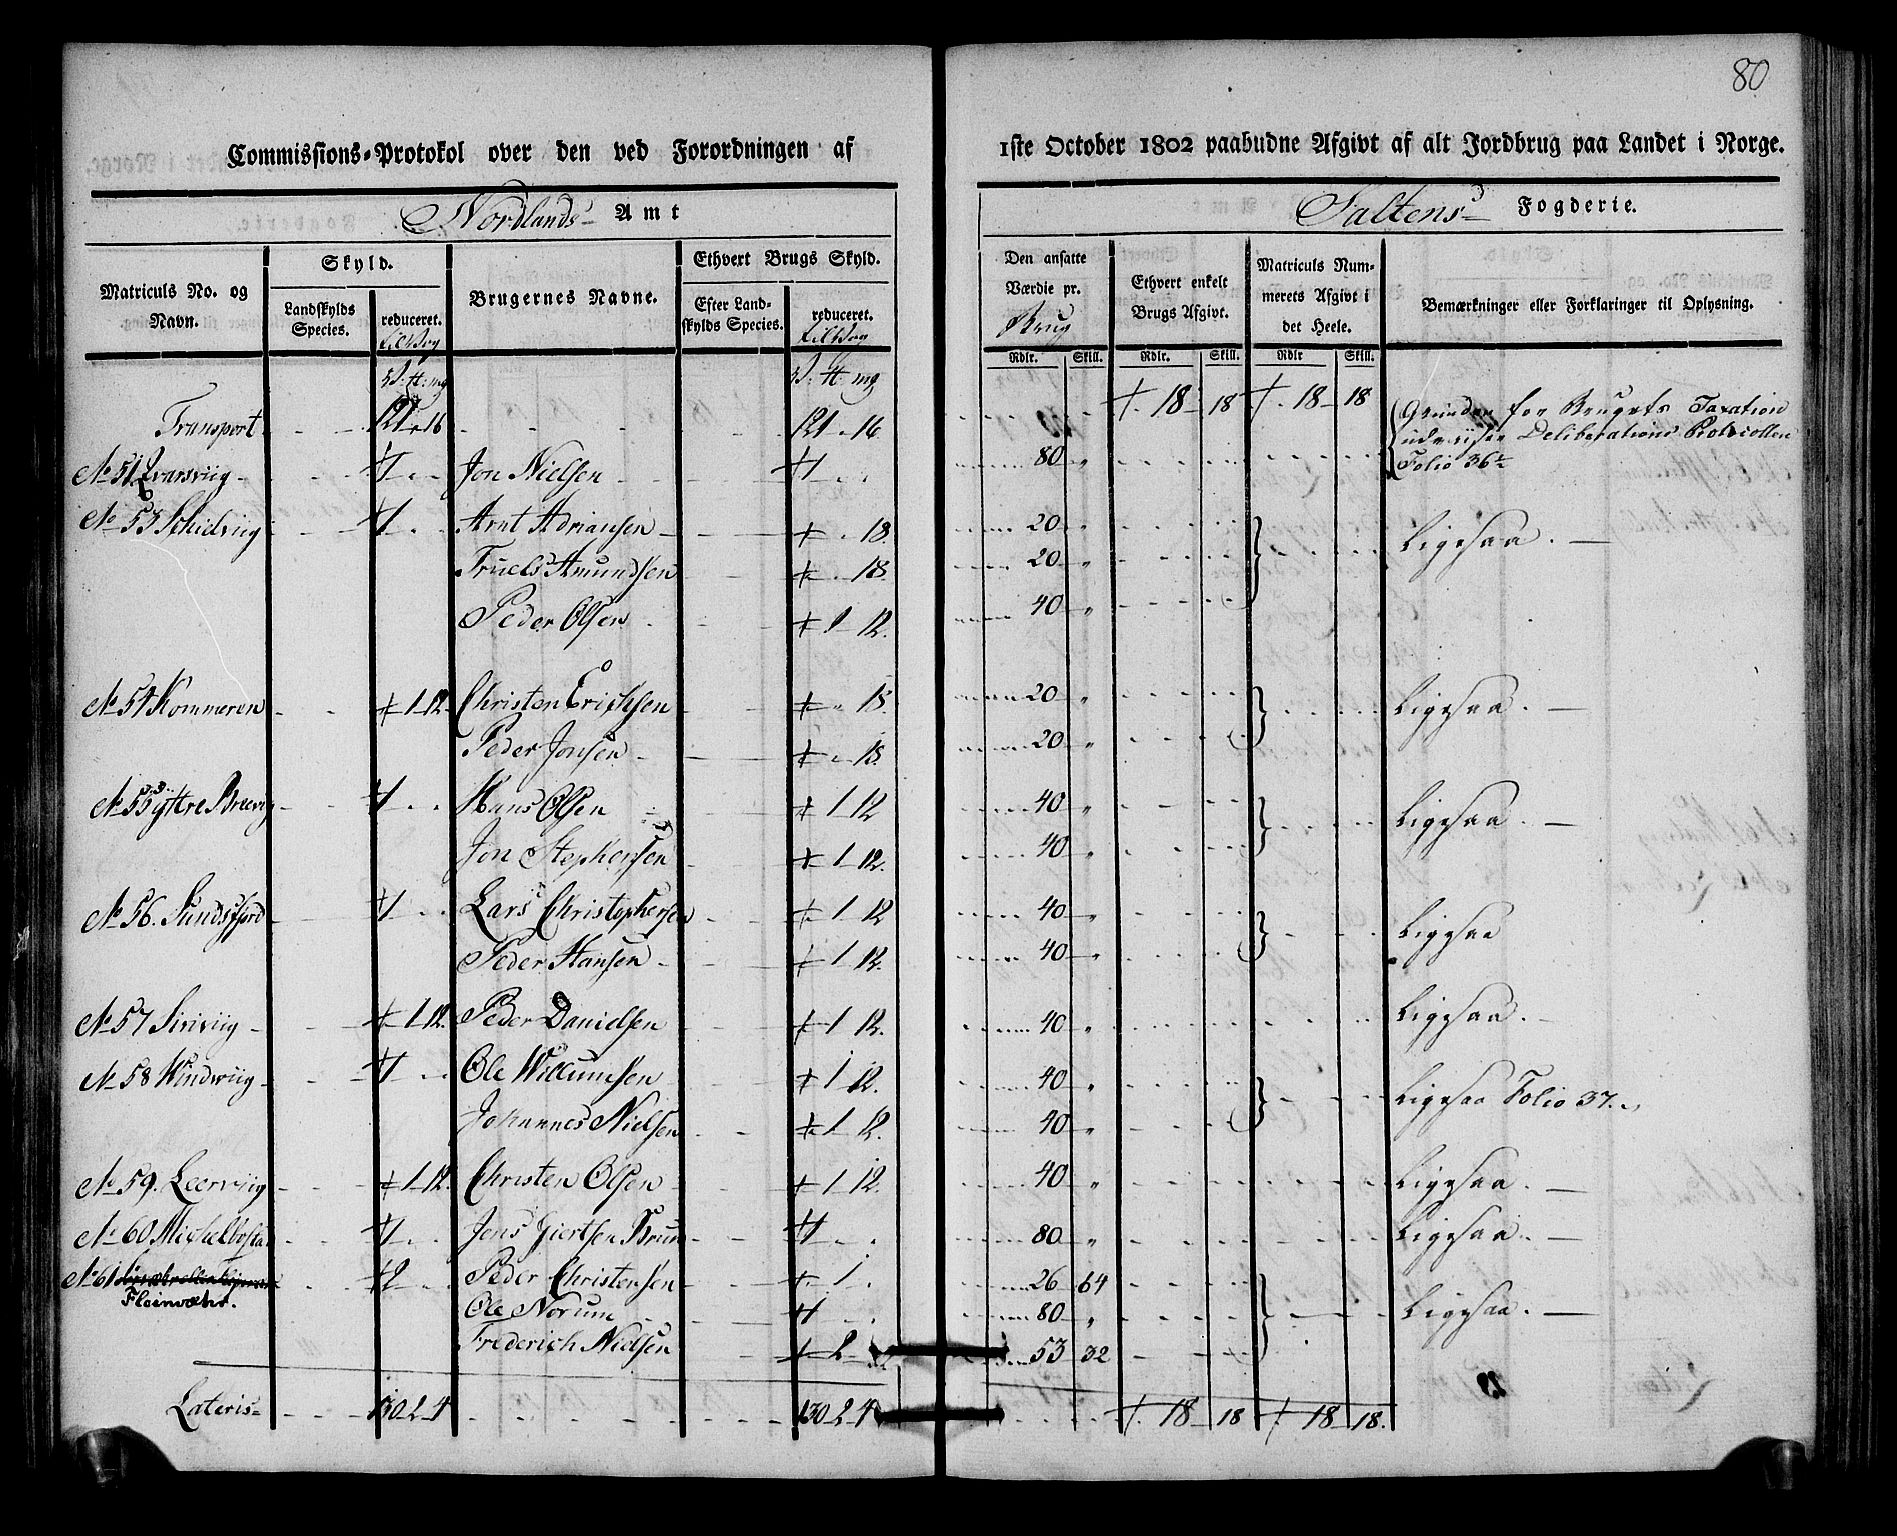 80
Commissions-Protokol over den ved Forordningen af 1ste October 1802 paabudne Afgivt af alt Jordbrug paa Landet i Norge.
Nordlands Amt
Saltens Fogderie.
Matriculs No. og Navn.
Skyld.
Landskylds Species.
reduceret.
Brugernes Navne.
Ethvert Brugs Skyld.
Efter Landskylds Species.
reduceret.
Den ansatte Værdie pr. Brug
Rdlr. Skill.
Ethvert enkelt Brugs Afgivt.
Rdlr. Skill.
Matriculs Nummerets Afgivt i det Heele.
Rdlr Skill.
Bemærkninger eller Forklaringer til Oplysning.
Transport 121 - 16 121 - 16 18 18 18 18
Grunden for Brugets Taxation
udviiser Deliberations Protocollen
Folio 36
No 51 Evarsviig 1 Jon Nielsen 1 80 "
No 53 Schidviig 1 Arnt Adriansen " 18. 20 " Ligesaa.
Truels Amundsen " 18. 20 "
Peder Olsen 1 12. 40 "
No 54 Kommeren 1 12. Christen Erichsen " 18. 20 " Ligesaa.
Peder Jonsen " 18. 20 "
No 55 yttre Breevig 1 Hans Olsen 1 12 40 " Ligesaa.
Jon Stephensen 1 12. 40 "
No 56. Sundsfjord 1 Lars Christophersen 1 12 40 " Ligesaa
Peder Hansen 1 12. 40 "
No 57 Siriviig 1 12. Peder Danielsen 1 12. 40 " Ligesaa.
No 58 Kindviig 1 Ole Willumsen 1 12. 40 " Ligesaa Folio 37.
Johannes Nielsen 1 12. 40 "
No 59. Leerviig 1 12. Christen Olsen 1 12. 40 " Ligesaa.
No 60 Michelbostad 1 Jens Giertsen Bruun 1 80 " Ligesaa.
No 61 2 Peder Christensen 1 26 64
Fleinvæhr. Ole Norum 1 80 " Ligesaa.
Frederich Nielsen 2 53 32
Lateris 130 2 4 130 2 4 18 18 18 18.